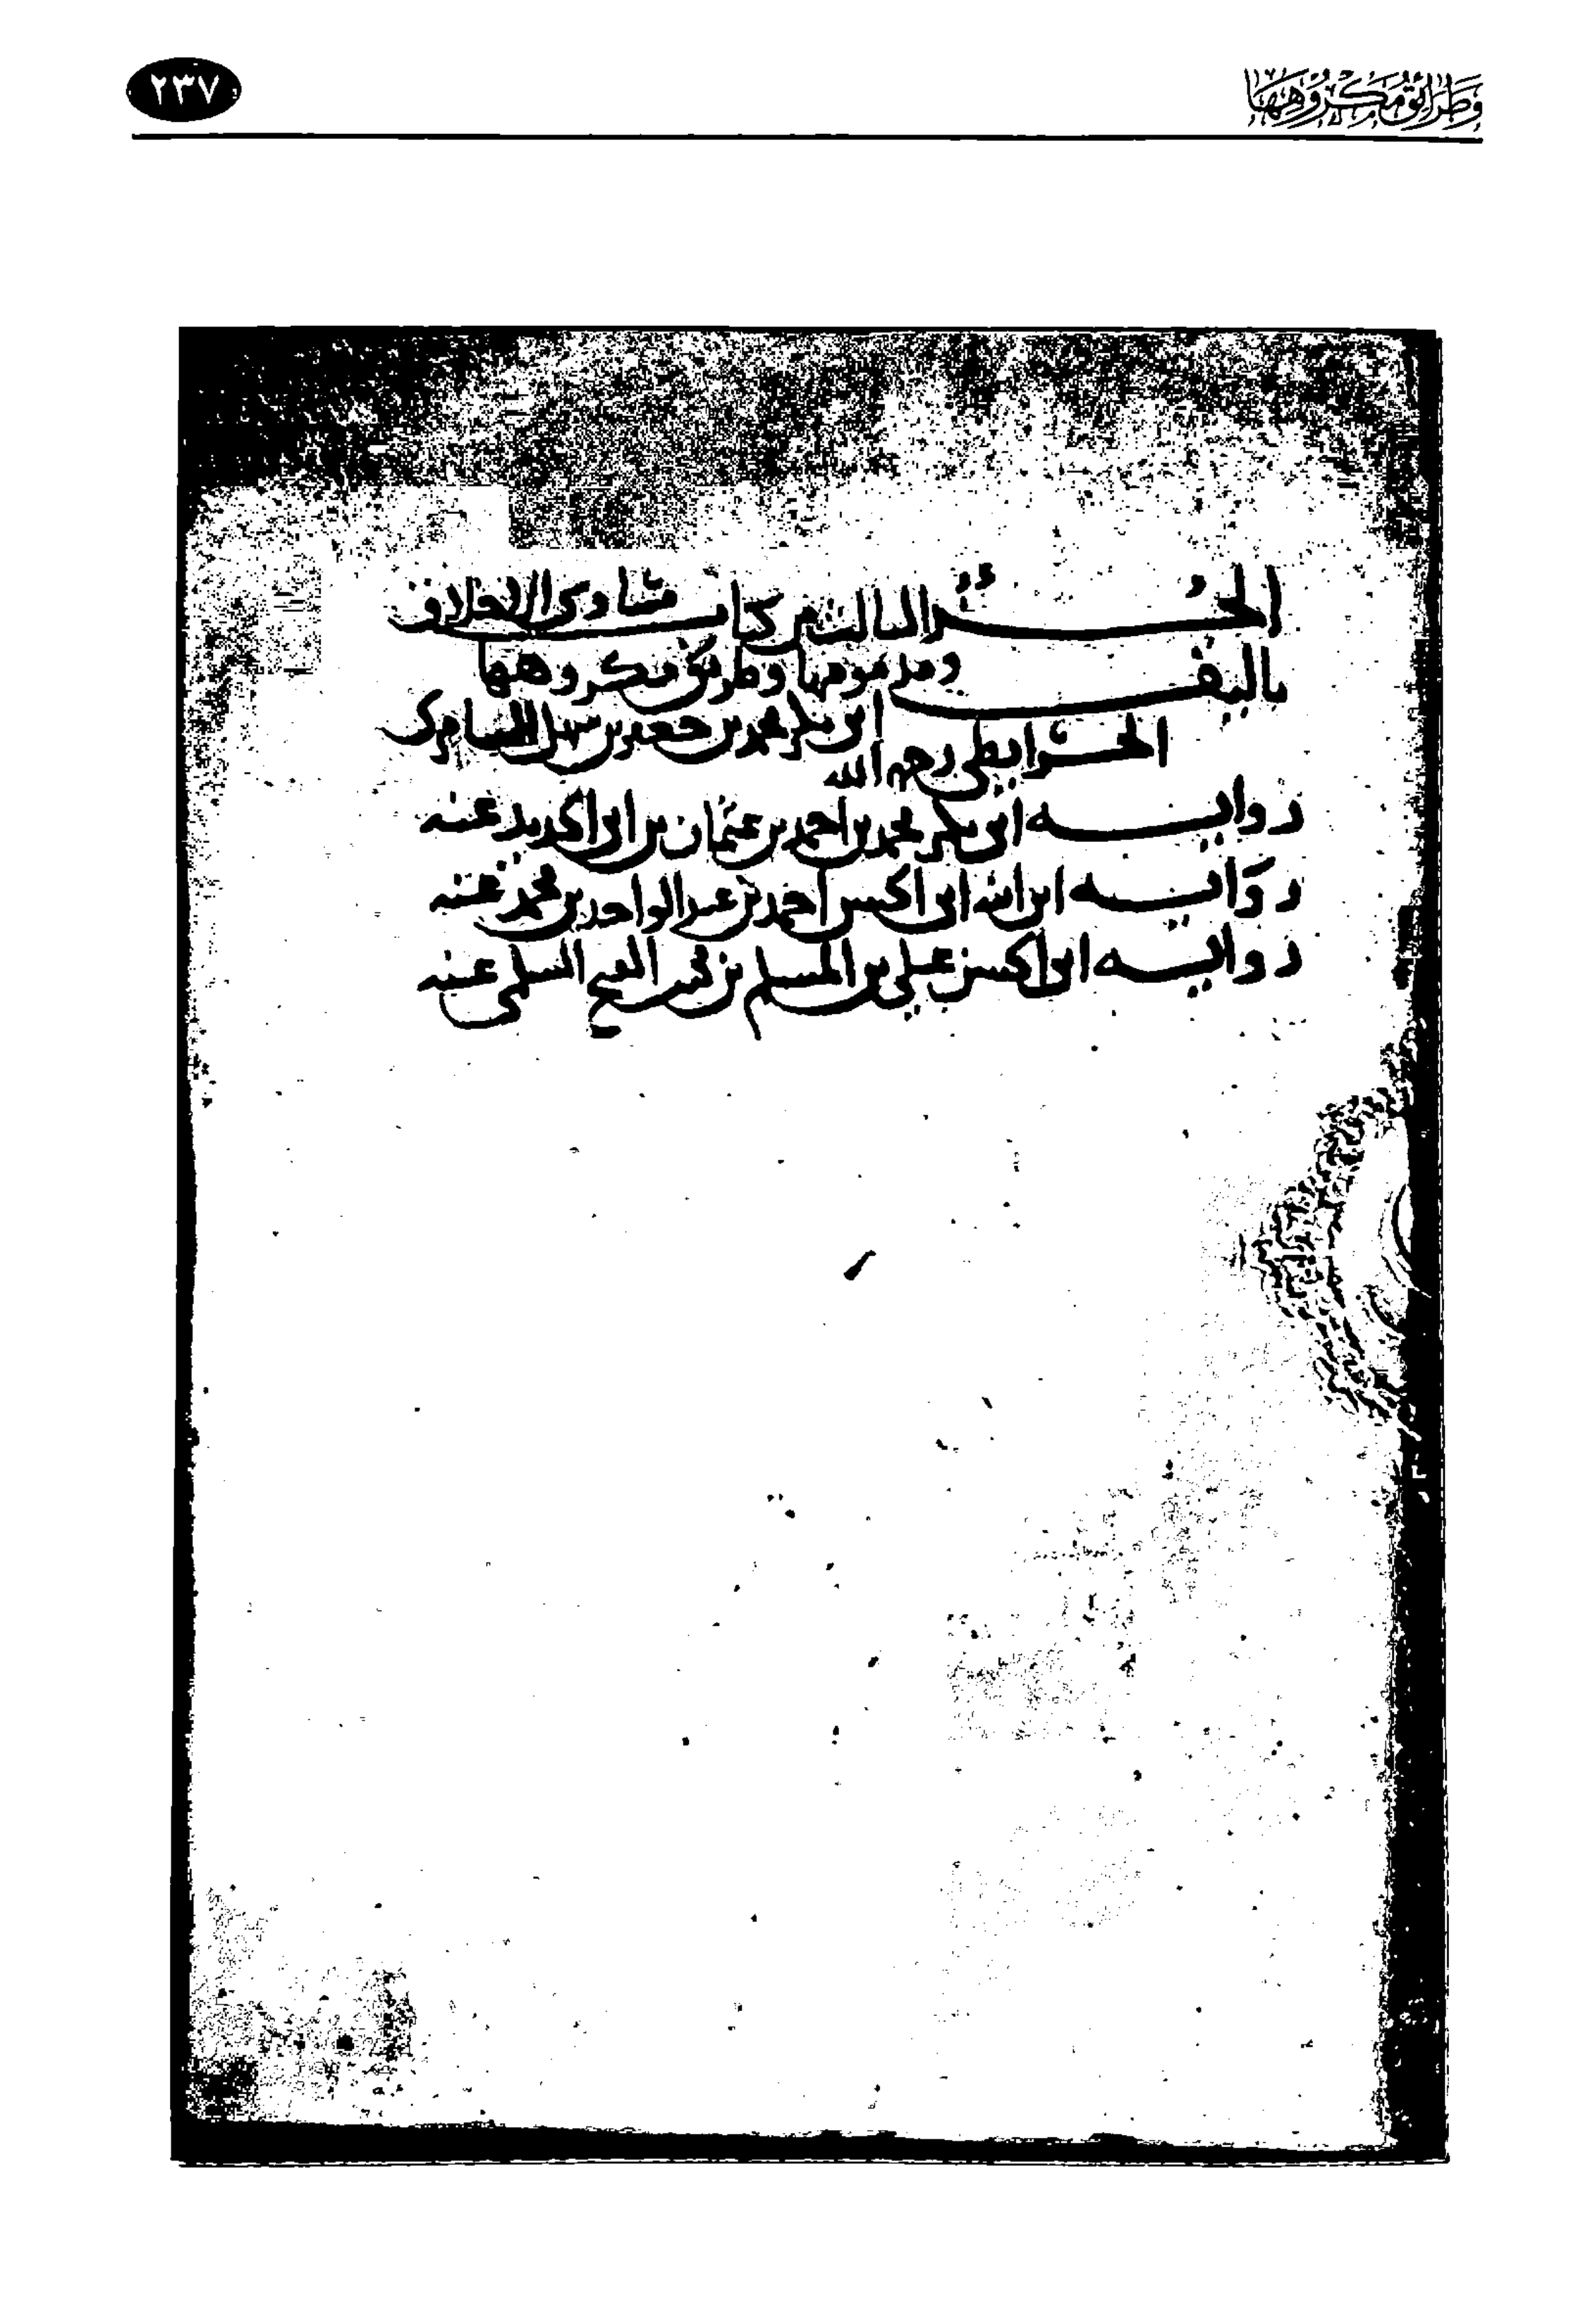 وَطَرَائِقُ مَكْرُوهِهَا
٢٣٧
الجزء الثالث من كتاب مساوئ الاخلاق
ومذمومها وطرائق مكروهها
تاليف ابى بكر محمد بن جعفر بن سهل السامرى
الخرايطى رحمه الله
روايه ابى بكر محمد بن احمد بن عثمان بن ابى الحديد عنه
روايه ابنه ابى الحسن احمد بن عبد الواحد بن محمد عنه
روايه ابى الحسن على بن المسلم بن محمد الفتح السلمى عنه